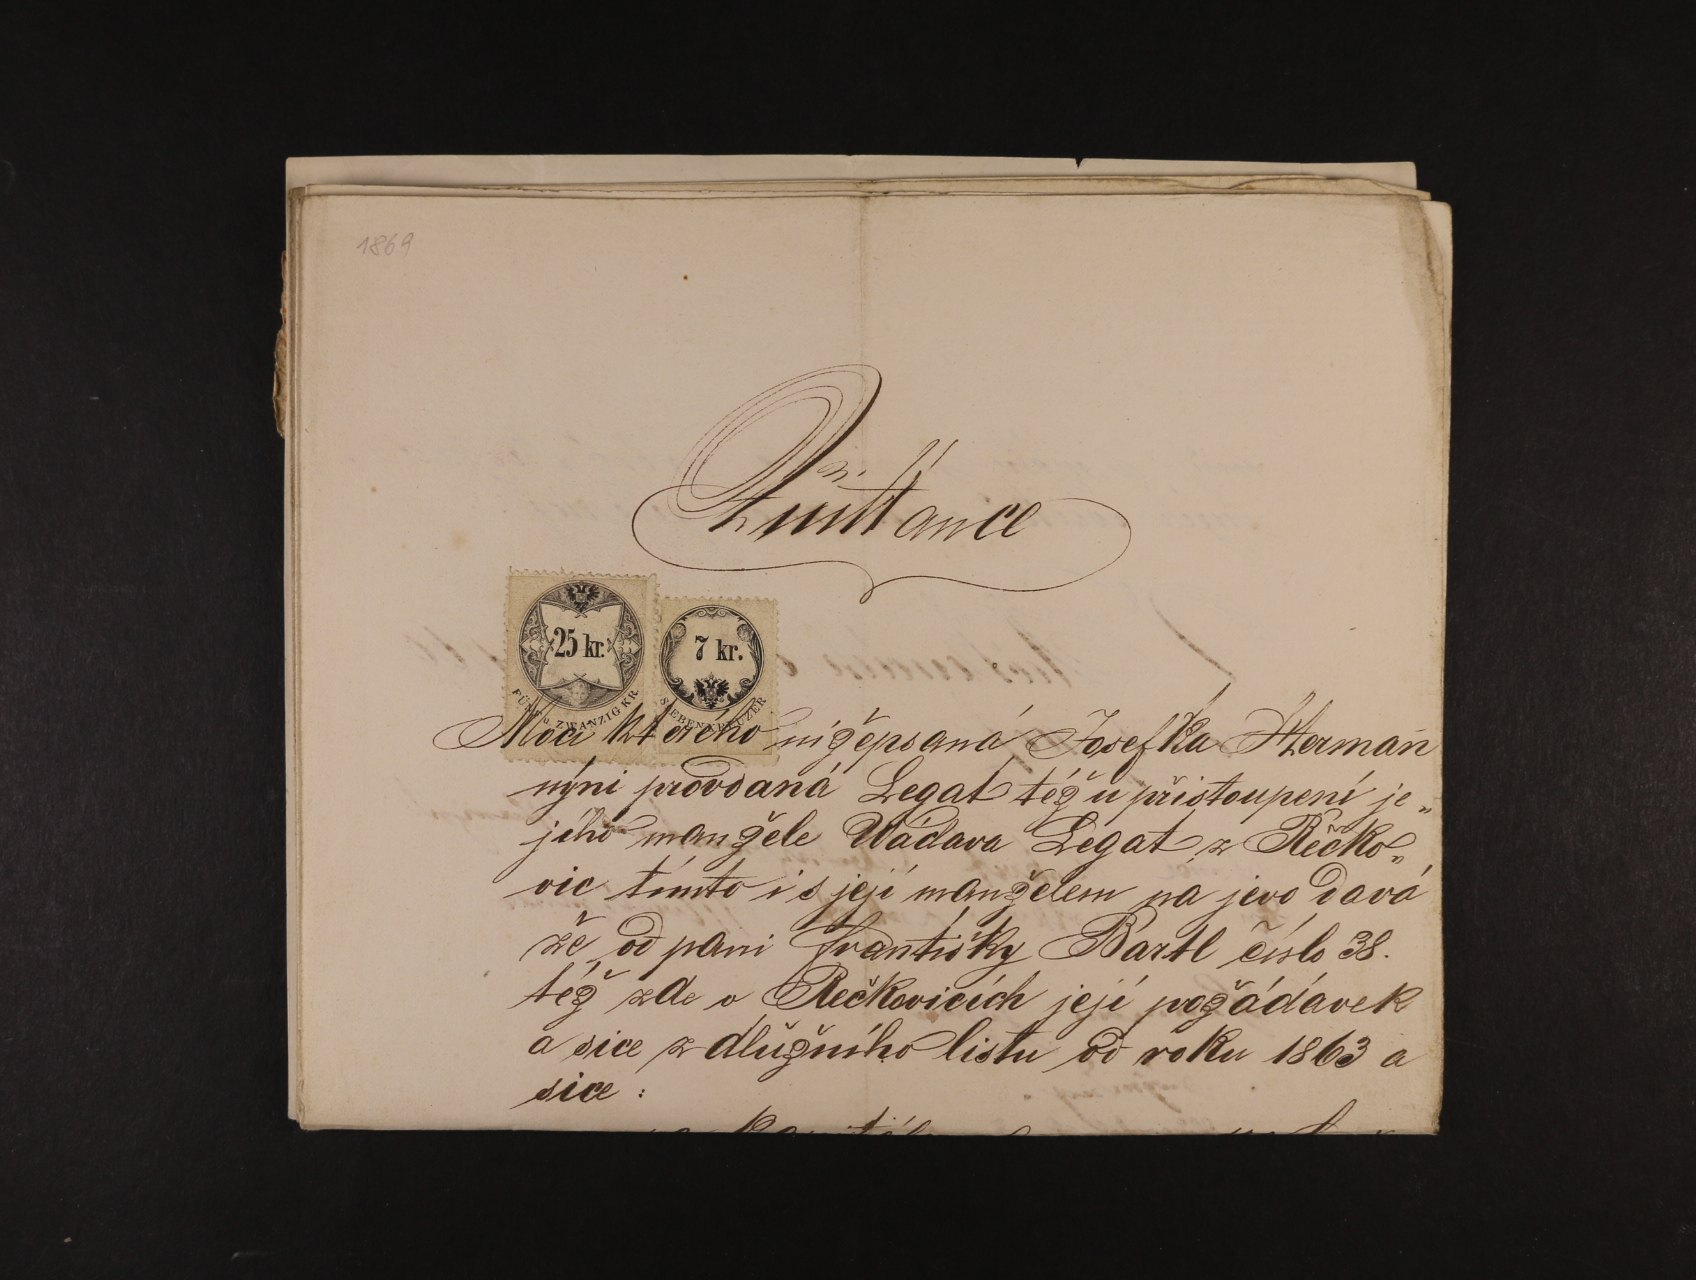 1869
Quittance
25 kr.
FÜNF u. ZWANZIG KR.
7 kr.
SIEBEN KREUZER
Mocí kterého nižěpsaná Josefka Herman
nýni provdaná Legat téžu přistoupení je„
jího manžele Václava Legat z Řěčko„
vic tímto i s její manželem na jevo davá
že od pani Františky Bartl číslo 38.
též zde v Řečkovicích její požádávek
a sice z dlužního listu od roku 1863 a
sice :